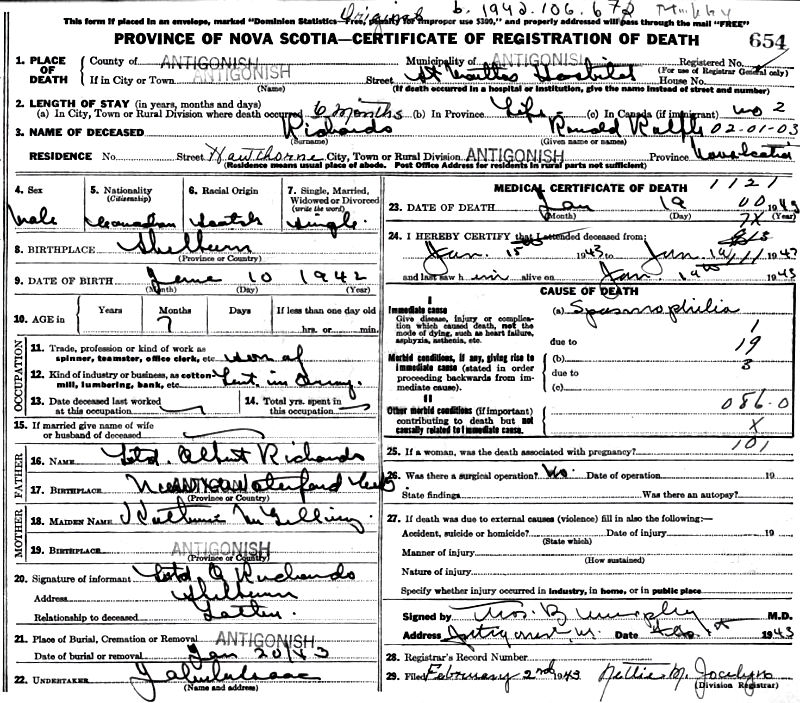 Original b. 1942.106.672
This form if placed in an envelope, marked "Dominion Statistics—Free, (penalty for improper use $300," and properly addressed will pass through the mail "FREE"
PROVINCE OF NOVA SCOTIA—CERTIFICATE OF REGISTRATION OF DEATH 654
1. PLACE OF DEATH County of ANTIGONISH Municipality of ANTIGONISH Registered No.
(For use of Registrar General only)
If in City or Town ANTIGONISH Street St Martha's Hospital House No.
(Name) (If death occurred in a hospital or institution, give the name instead of street and number)
2. LENGTH OF STAY (in years, months and days)
(a) In City, Town or Rural Division where death occurred 6 months (b) In Province Life (c) In Canada (if immigrant) no 2
3. NAME OF DECEASED Richards Ronald Ralph 02-01-03
(Surname) (Given name or names)
RESIDENCE No. Street Hawthorne City, Town or Rural Division ANTIGONISH Province Nova Scotia
(Residence means usual place of abode. Post Office Address for residents in rural parts not sufficient)
4. Sex Male
5. Nationality (Citizenship) Canadian
6. Racial Origin Scotch
7. Single, Married, Widowed or Divorced (write the word) Single
8. BIRTHPLACE Shelburn
(Province or Country)
9. DATE OF BIRTH June 10 1942
(Month) (Day) (Year)
10. AGE in Years Months Days If less than one day old
7 hrs. or min.
OCCUPATION
11. Trade, profession or kind of work as spinner, teamster, office clerk, etc. son of
12. Kind of industry or business, as cotton mill, lumbering, bank, etc. Lieut in Army.
13. Date deceased last worked at this occupation
14. Total yrs. spent in this occupation
15. If married give name of wife or husband of deceased
FATHER
16. NAME Albert Richards
17. BIRTHPLACE Waterford
(Province or Country)
MOTHER
18. MAIDEN NAME Katherine McGillivray
19. BIRTHPLACE ANTIGONISH
(Province or Country)
20. Signature of informant A Richards
Address Shelburn
Relationship to deceased Father.
21. Place of Burial, Cremation or Removal ANTIGONISH
Date of burial or removal Jan 20/43
22. UNDERTAKER
(Name and address)
MEDICAL CERTIFICATE OF DEATH 1121
23. DATE OF DEATH Jan 19 1943
(Month) (Day) (Year)
24. I HEREBY CERTIFY that I attended deceased from:
Jan. 15th 1943 to Jan. 19 1943
and last saw h im alive on Jan. 19th 1943
CAUSE OF DEATH
I
Immediate cause (a) Spasmophilia
Give disease, injury or complication which caused death, not the mode of dying, such as heart failure, asphyxia, asthenia, etc.
1
due to 19
Morbid conditions, if any, giving rise to immediate cause (stated in order proceeding backwards from immediate cause).
(b) 3
due to
(c)
II
086.0
Other morbid conditions (if important) contributing to death but not causally related to immediate cause.
X
101
25. If a woman, was the death associated with pregnancy?
26. Was there a surgical operation? No. Date of operation 19
State findings Was there an autopsy?
27. If death was due to external causes (violence) fill in also the following:—
Accident, suicide or homicide? Date of injury 19
(State which)
Manner of injury
(How sustained)
Nature of injury
Specify whether injury occurred in industry, in home, or in public place
Signed by Thos. B Murphy M.D.
Address Antigonish, Date 1943
28. Registrar's Record Number
29. Filed February 2nd 1943 Nellie M. Jocelyn
(Division Registrar)